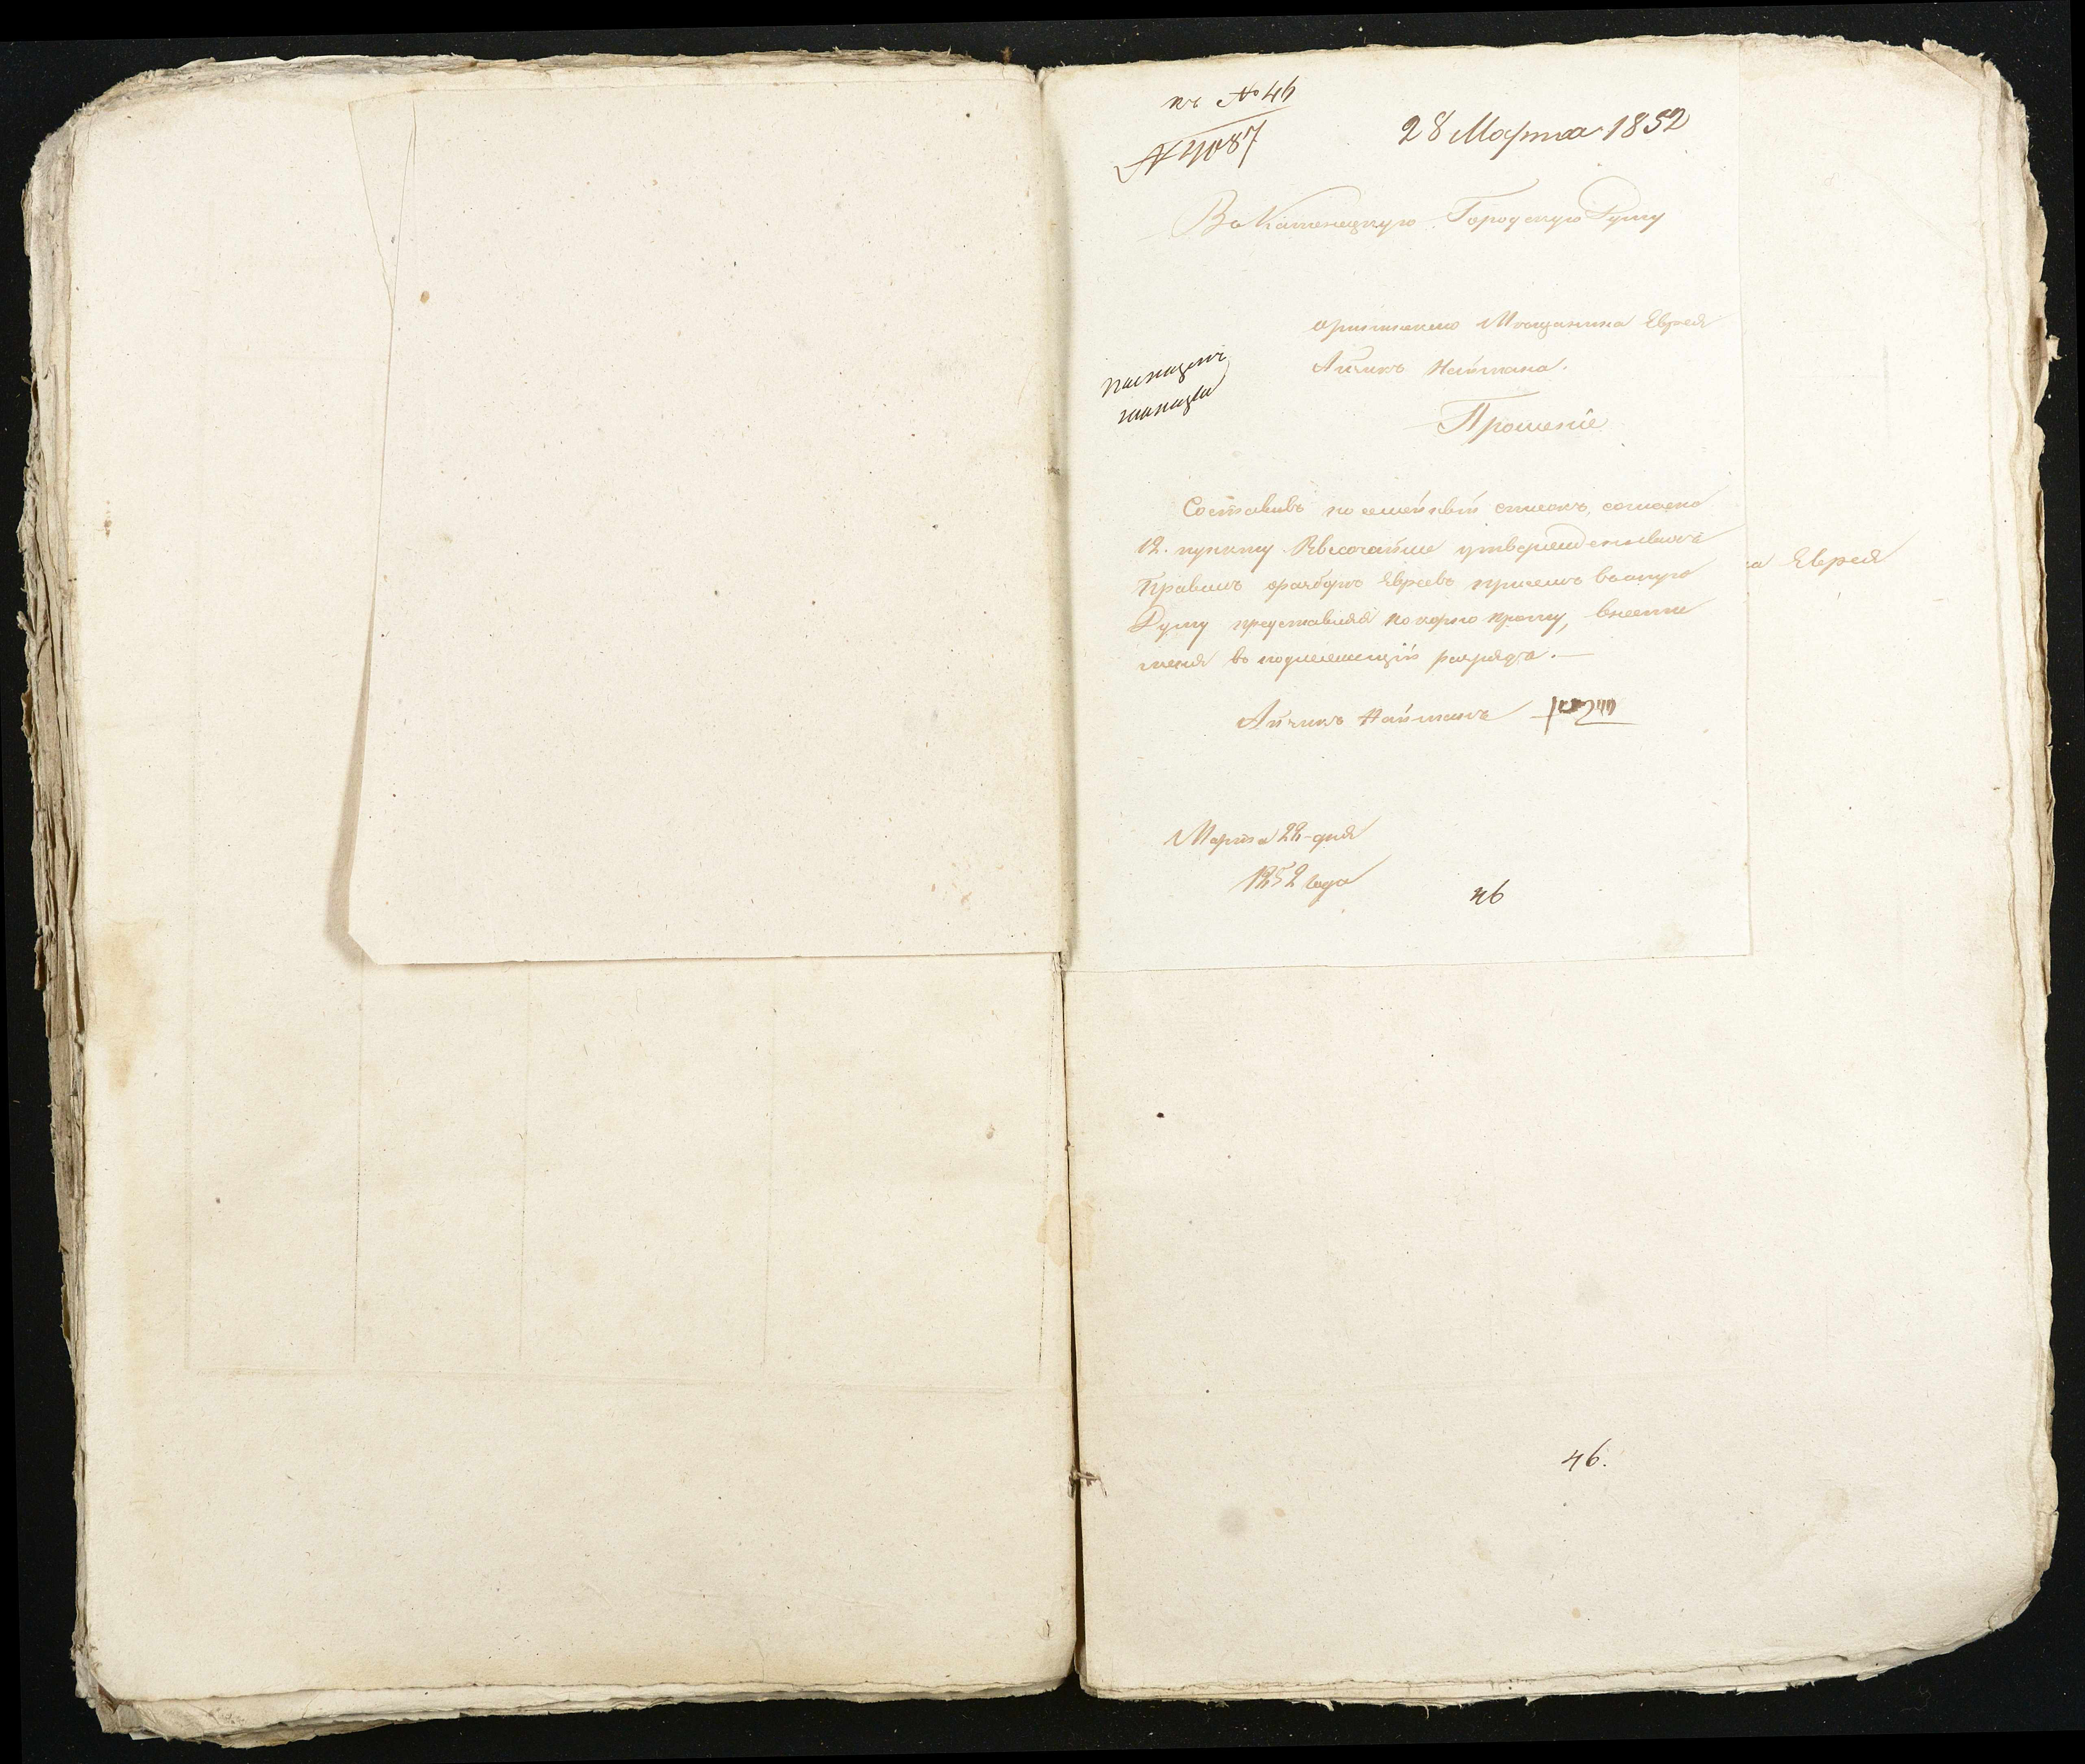 къ № 46
№ 4087
28 Марта 1852
Въ Каменецкую Городскую Думу
Мещанина Еврея
Айчикъ Наймана.
Прошеніе
Составивъ посемейный списокъ, согласно
12. пункту Высочайше утвержденныхъ
Правилъ о разборѣ Евреевъ при семъ въ оную
Думу представляя покорно прошу, внести
меня въ подлежащій разрядъ.—
Айчикъ Найманъ
Марта 28 дня
1852 года
46
а Еврея
46.